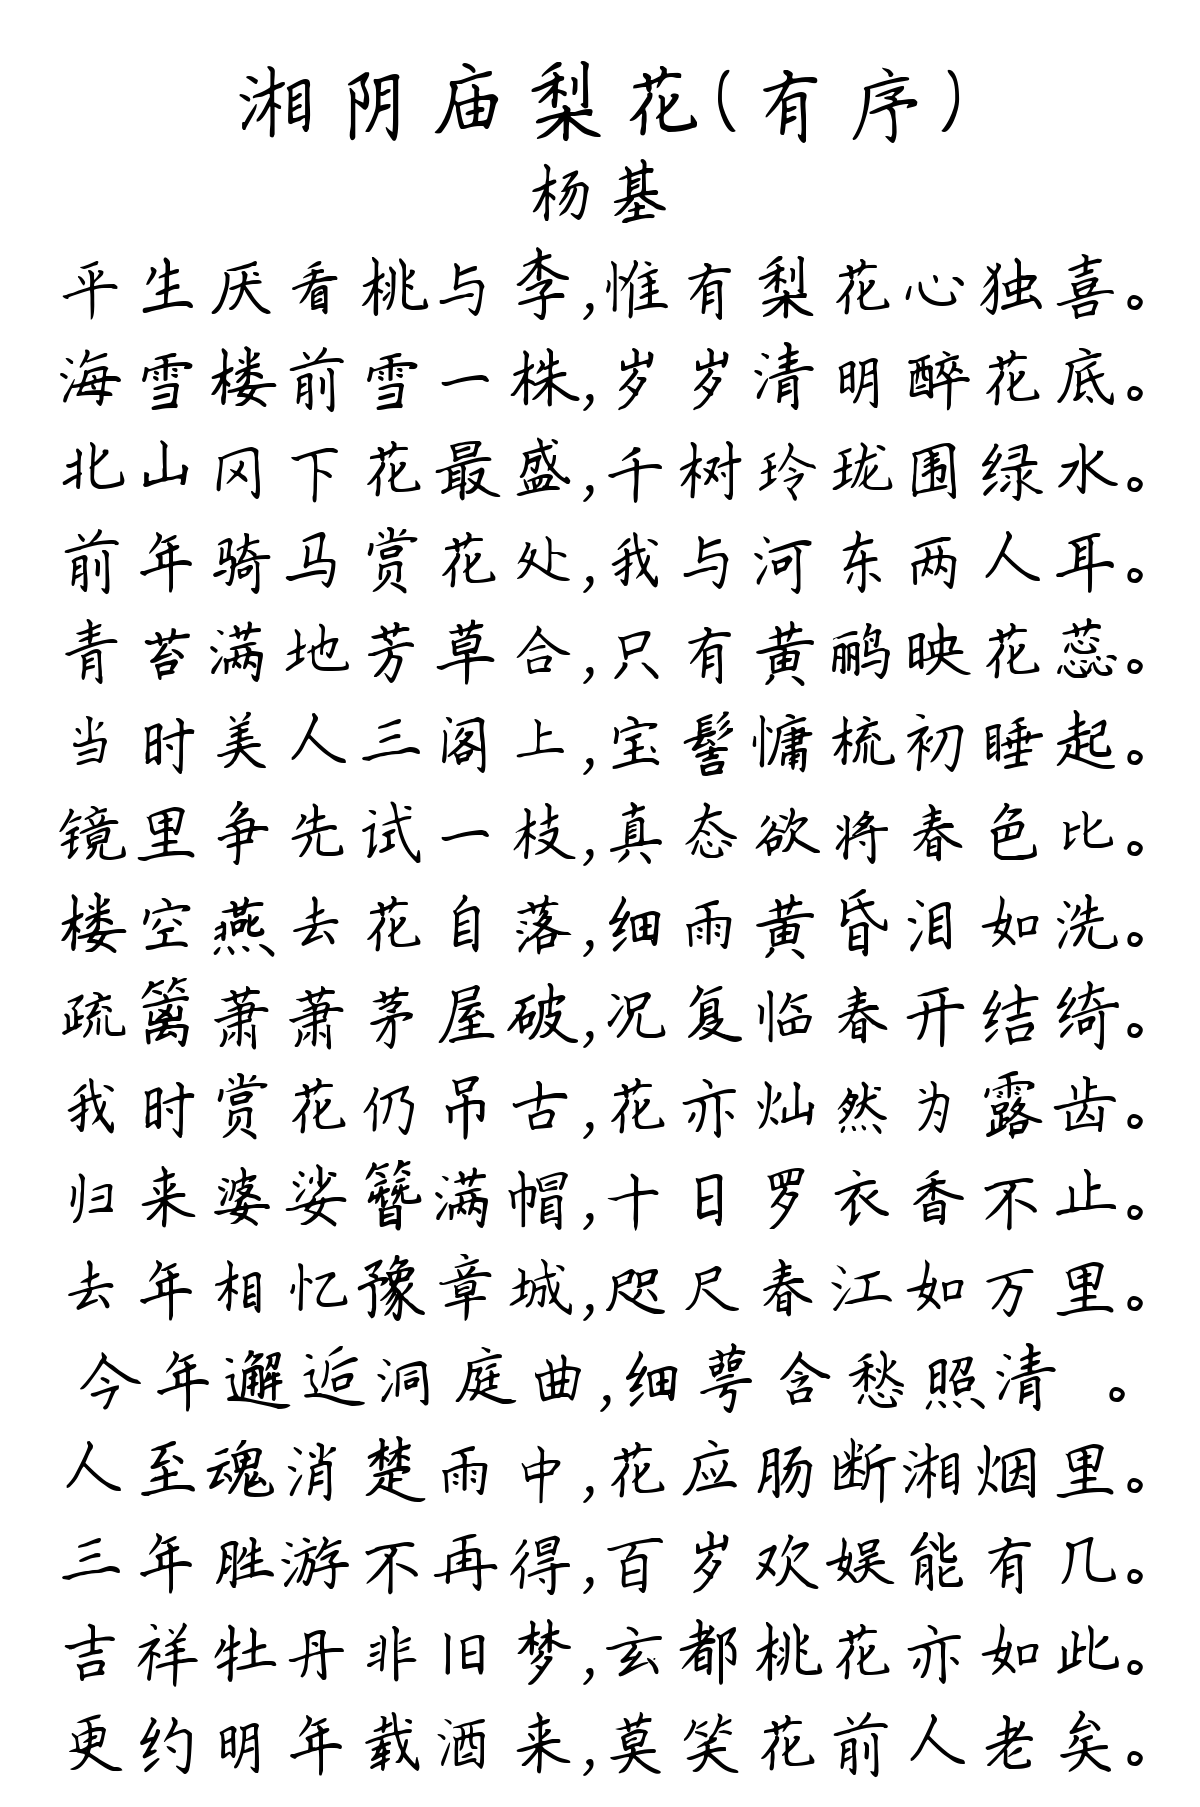 湘阴庙梨花(有序)
杨基
平生厌看桃与李,惟有梨花心独喜。
海雪楼前雪一株,岁岁清明醉花底。
北山冈下花最盛,千树玲珑围绿水。
前年骑马赏花处,我与河东两人耳。
青苔满地芳草合,只有黄鹂映花蕊。
当时美人三阁上,宝髻慵梳初睡起。
镜里争先试一枝,真态欲将春色比。
楼空燕去花自落,细雨黄昏泪如洗。
疏篱萧萧茅屋破,况复临春开结绮。
我时赏花仍吊古,花亦灿然为露齿。
归来婆娑簪满帽,十日罗衣香不止。
去年相忆豫章城,咫尺春江如万里。
今年邂逅洞庭曲,细萼含愁照清 。
人至魂消楚雨中,花应肠断湘烟里。
三年胜游不再得,百岁欢娱能有几。
吉祥牡丹非旧梦,玄都桃花亦如此。
更约明年载酒来,莫笑花前人老矣。